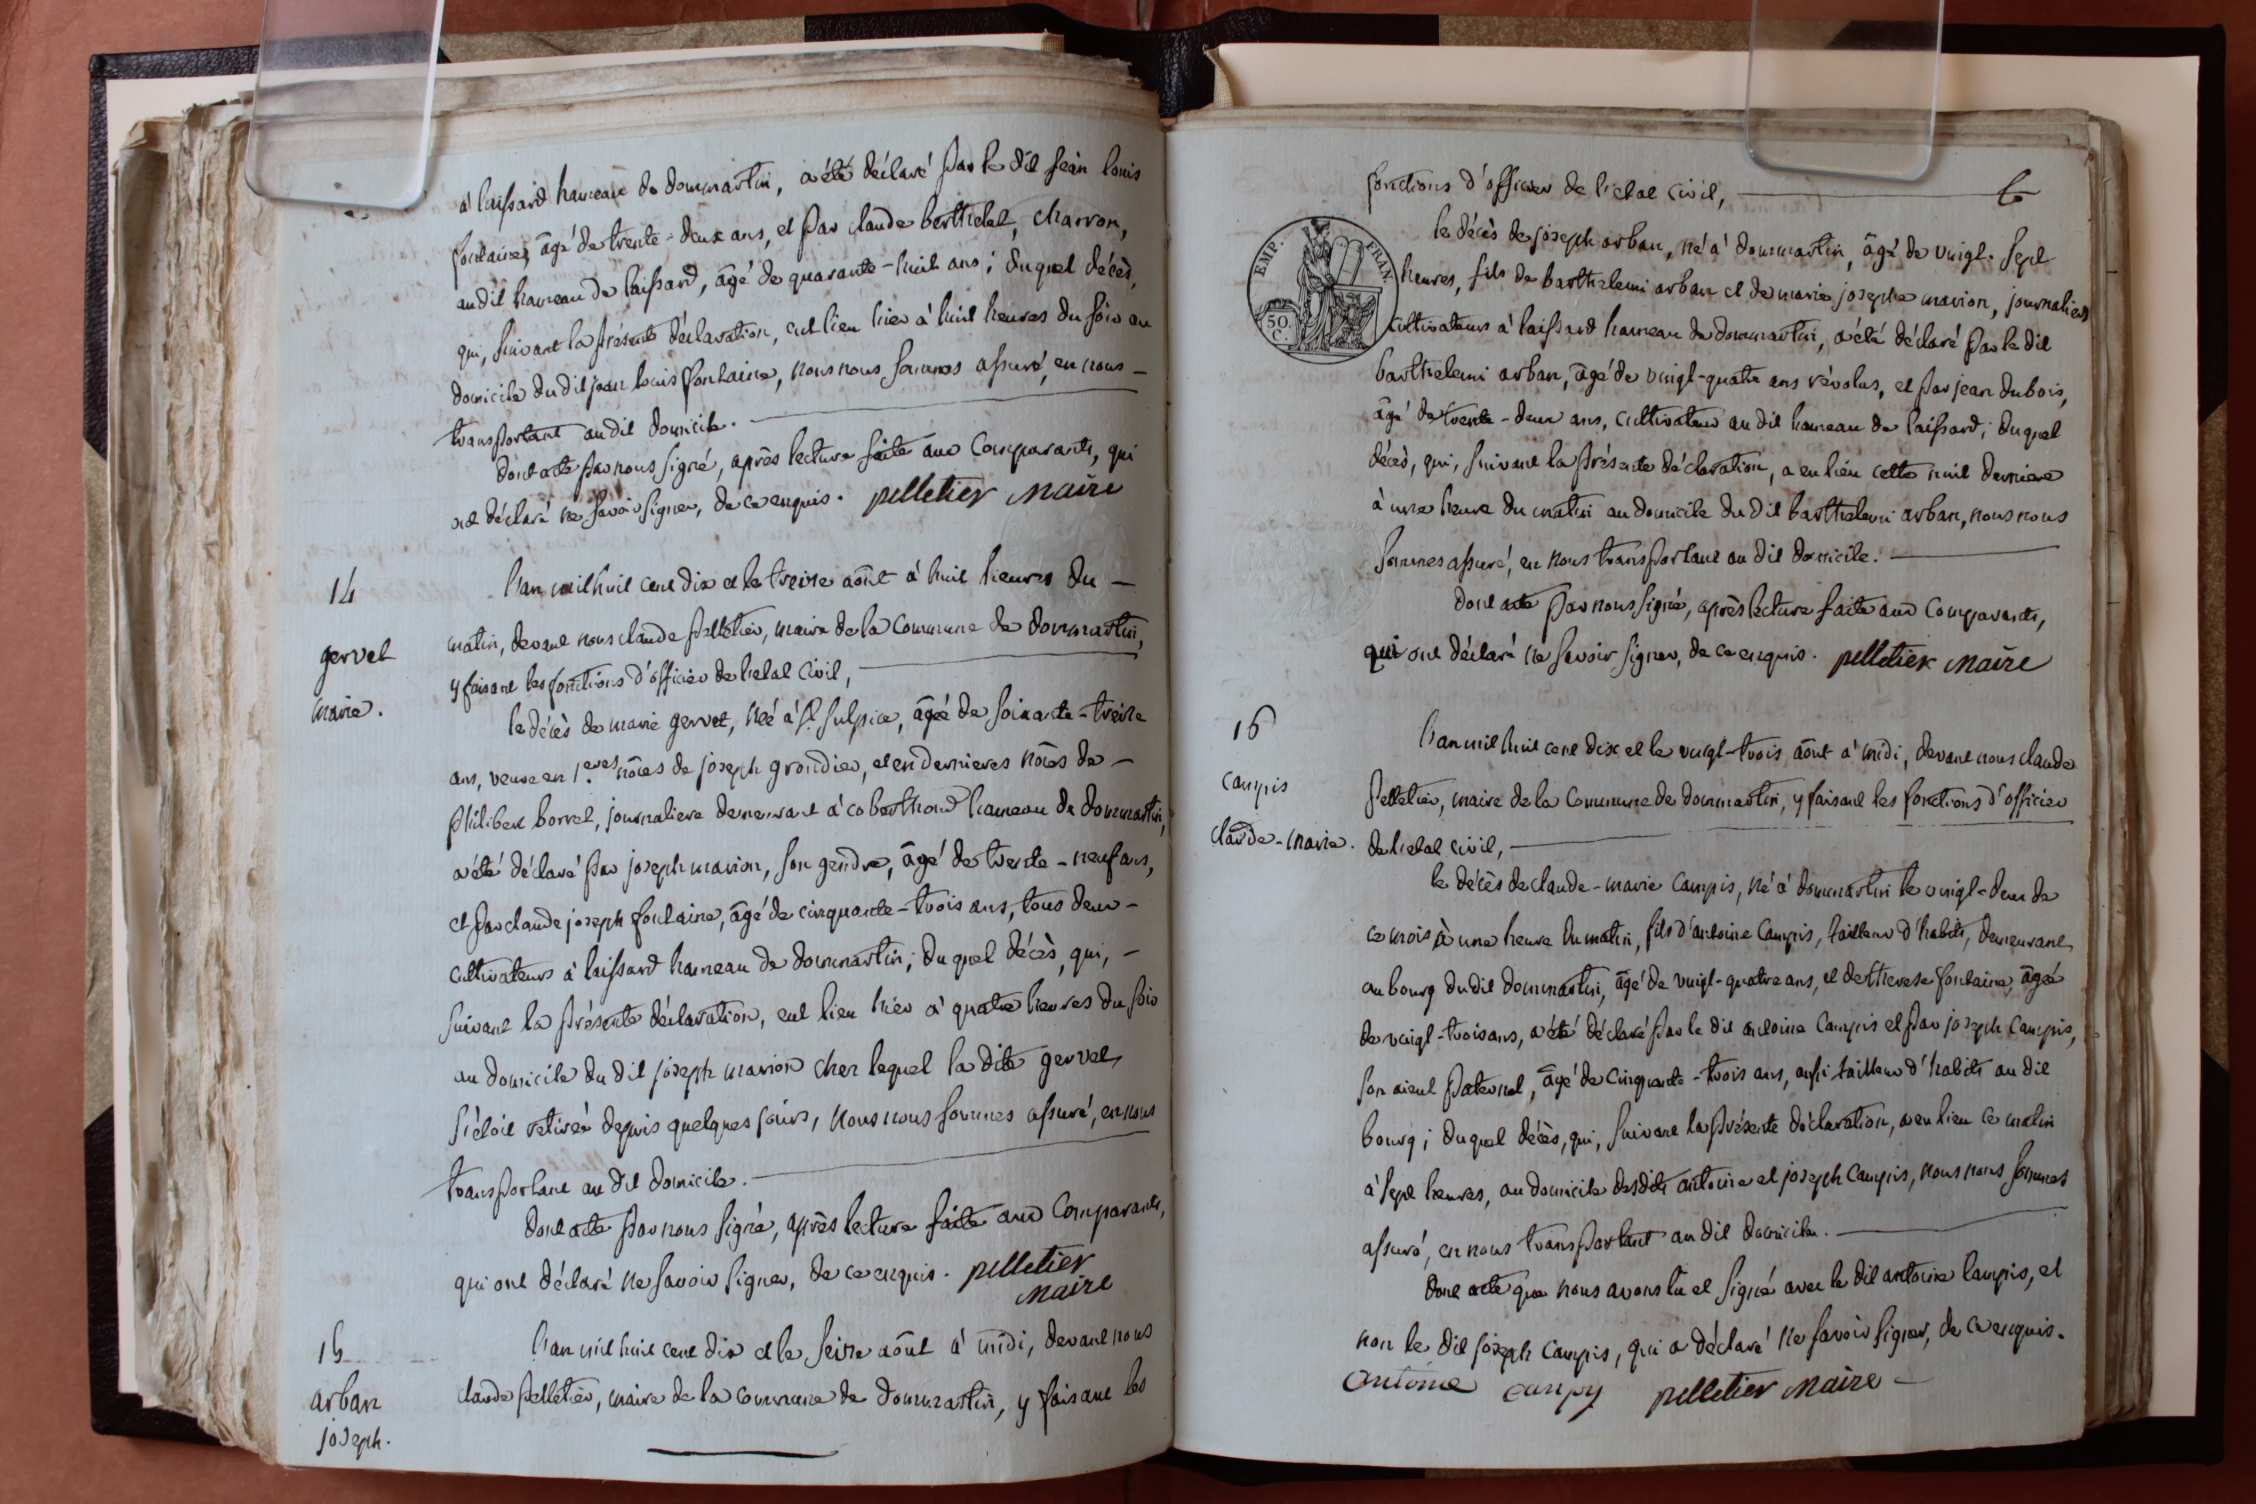 à laissard hameau de dommartin, a été déclaré par le dit jean louis
fontaine, âgé de trente-deux ans, et par claude berthelet, charron,
au dit hameau de laissard, âgé de quarante-huit ans; duquel décès,
qui, suivant la présente déclaration, eut lieu hier à huit heures du soir au
domicile du dit jean louis fontaine, nous nous sommes assuré, en nous
transportant au dit domicile.
dont acte par nous signé, après lecture faite aux comparants, qui
ont déclaré ne savoir signer, de ce enquis. pelletier maire
14
gervet
marie.
L'an mil huit cent dix et le treize aôut à huit heures du
matin, devant nous claude pelletier, maire de la commune de dommartin,
y faisant les fonctions d'officier de l'etat civil,
le décès de marie gervet, née à St. sulpice, âgée de soixante-treize
ans, veuve en 1.eres nôces de joseph grondier, et en dernieres nôces de
philibert borrel, journaliere demeurant à cobarthoud hameau de dommartin,
a été déclaré par joseph marion, son gendre, âgé de trente-neuf ans,
et par claude joseph fontaine, âgé de cinquante-trois ans, tous deux
cultivateurs à laissard hameau de dommartin; duquel décès, qui,
suivant la présente déclaration, eut lieu hier à quatre heures du soir
au domicile du dit joseph marion chez lequel la dite gervet
s'étoit retirée depuis quelques jours, nous nous sommes assuré, en nous
transportant au dit domicile.
dont acte par nous signé, après lecture faite aux comparants,
qui ont déclaré ne savoir signer, de ce enquis. pelletier
maire
15
arban
joseph.
L'an mil huit cent dix et le seize aôut à midi, devant nous
claude pelletier, maire de la commune de dommartin, y faisant les
fonctions d'officier de l'etat civil, 6
EMP. FRAN.
50.
C.
le décès de joseph arban, né à dommartin, âgé de vingt-sept
heures, fils de barthelemi arban et de marie josephe marion, journaliers
cultivateurs à laissard hameau de dommartin, a été déclaré par le dit
barthelemi arban, âgé de vingt-quatre ans révolus, et par jean dubois,
âgé de trente-deux ans, cultivateur au dit hameau de laissard; duquel
décès, qui, suivant la présente déclaration, a eu lieu cette nuit derniere
à une heure du matin au domicile du dit barthelemi arban, nous nous
sommes assuré, en nous transportant au dit domicile.
dont acte par nous signé, après lecture faite aux comparants,
qui ont déclaré ne savoir signer, de ce enquis. pelletier maire
16
campis
claude-marie.
L'an mil huit cent dix et le vingt-trois aôut à midi, devant nous claude
pelletier, maire de la commune de dommartin, y faisant les fonctions d'officier
de l'etat civil,
le décès de claude-marie campis, né à dommartin le vingt-deux de
ce mois à une heure du matin, fils d'antoine campis, tailleur d'habits, demeurant
au bourg du dit dommartin, âgé de vingt-quatre ans, et de therese fontaine, âgée
de vingt-trois ans, a été déclaré par le dit antoine campis et par joseph campis,
son aieul paternel, âgé de cinquante-trois ans, aussi tailleur d'habits au dit
bourg; duquel décès, qui, suivant la présente déclaration, a eu lieu ce matin
à sept heures, au domicile desdits antoine et joseph campis, nous nous sommes
assuré, en nous transportant au dit domicile.
dont acte que nous avons lu et signé avec le dit antoine campis, et
non le dit joseph campis, qui a déclaré ne savoir signer, de ce enquis.
antoine campy pelletier maire